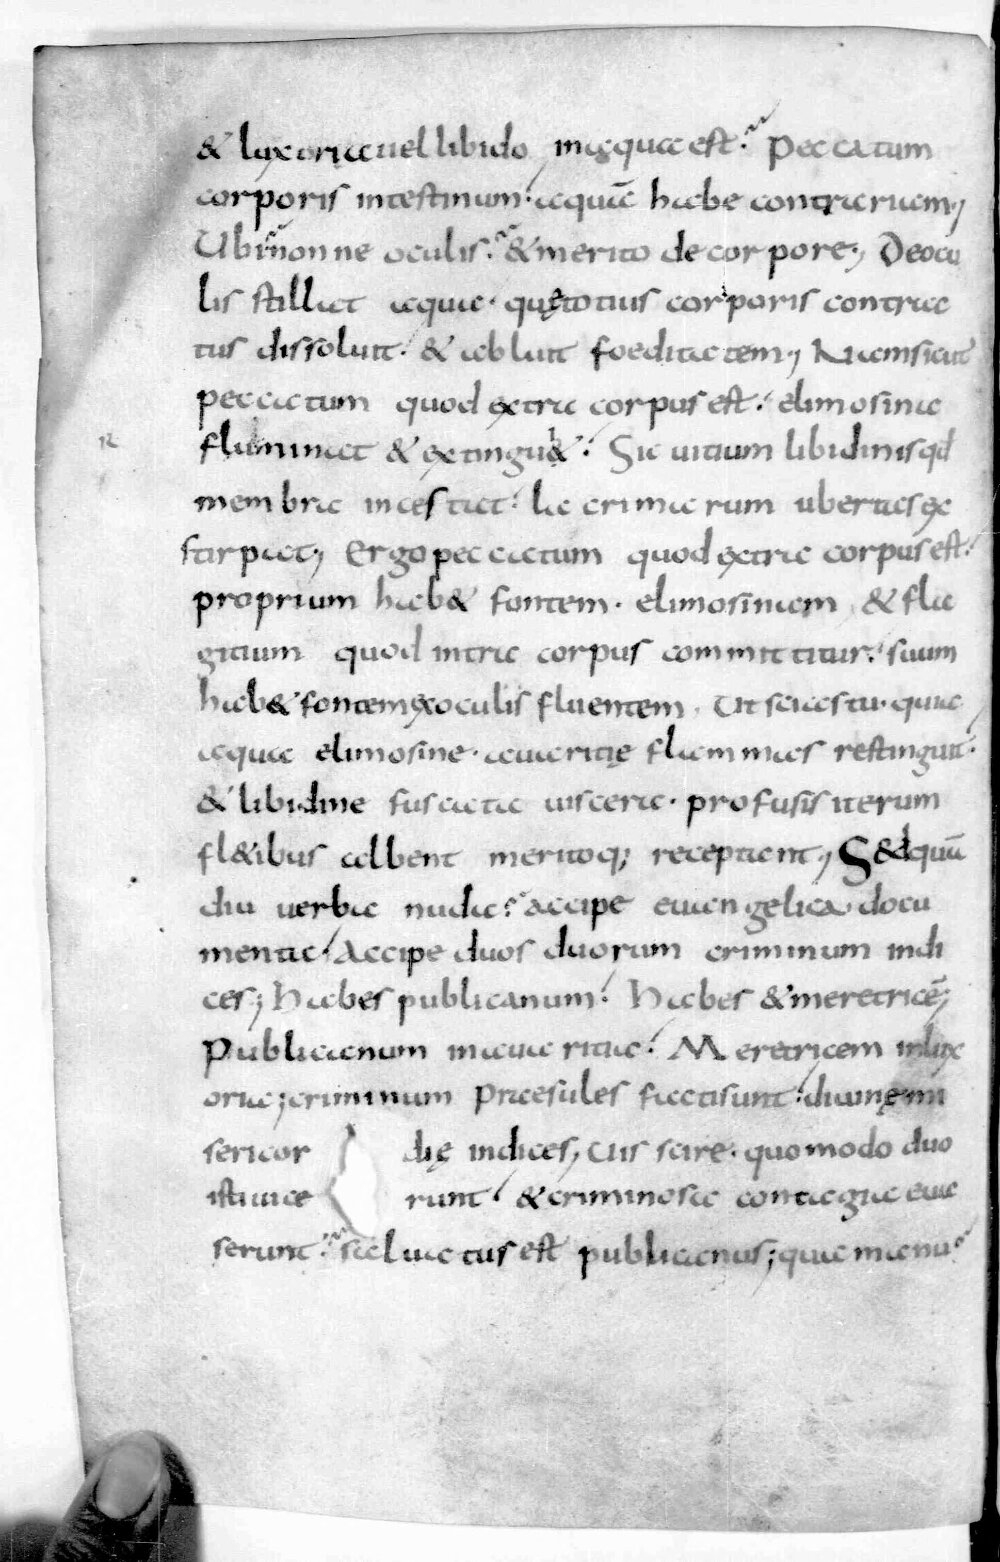 & luxoria uel libido in aqua est. Peccatum
corporis intestinum. aquā habe contrariam;
Ubi nonne oculis. & merito de corpore; De ocu
lis stillat aqua. quę totius corporis contrac
tus dissoluit. & abluit foeditatem; Nam sicut
peccatum quod extra corpus est. elimosina
fluminat & extinguit. Sic uitium libidinis qđ
membra incestat. lacrimarum ubertas ex
stirpat; Ergo peccatum quod extra corpus est.
proprium hab& fontem. elimosinam & fla
gitium quod intra corpus committitur. suum
hab& fontem ex oculis fluentem. Ut scias tu. quia
aqua elimosine. auaritię flammas restinguit.
& libidine fuscata uiscera. profusis iterum
fl&ibus albent meritoq; receptant; Sed quā
diu uerba nudic. accipe euangelica docu
menta. Accipe duos duorum criminum indi
ces; Habes publicanum. Habes & meretricē;
Publicanum in auaritia. Meretricem in lux
oria; criminum praesules facti sunt. diuinę mi
sericor dię indices; Uis scire. quomodo duo
isti uica runt. & criminosa contagia eua
serunt. saluatus est publicanus; quia manu